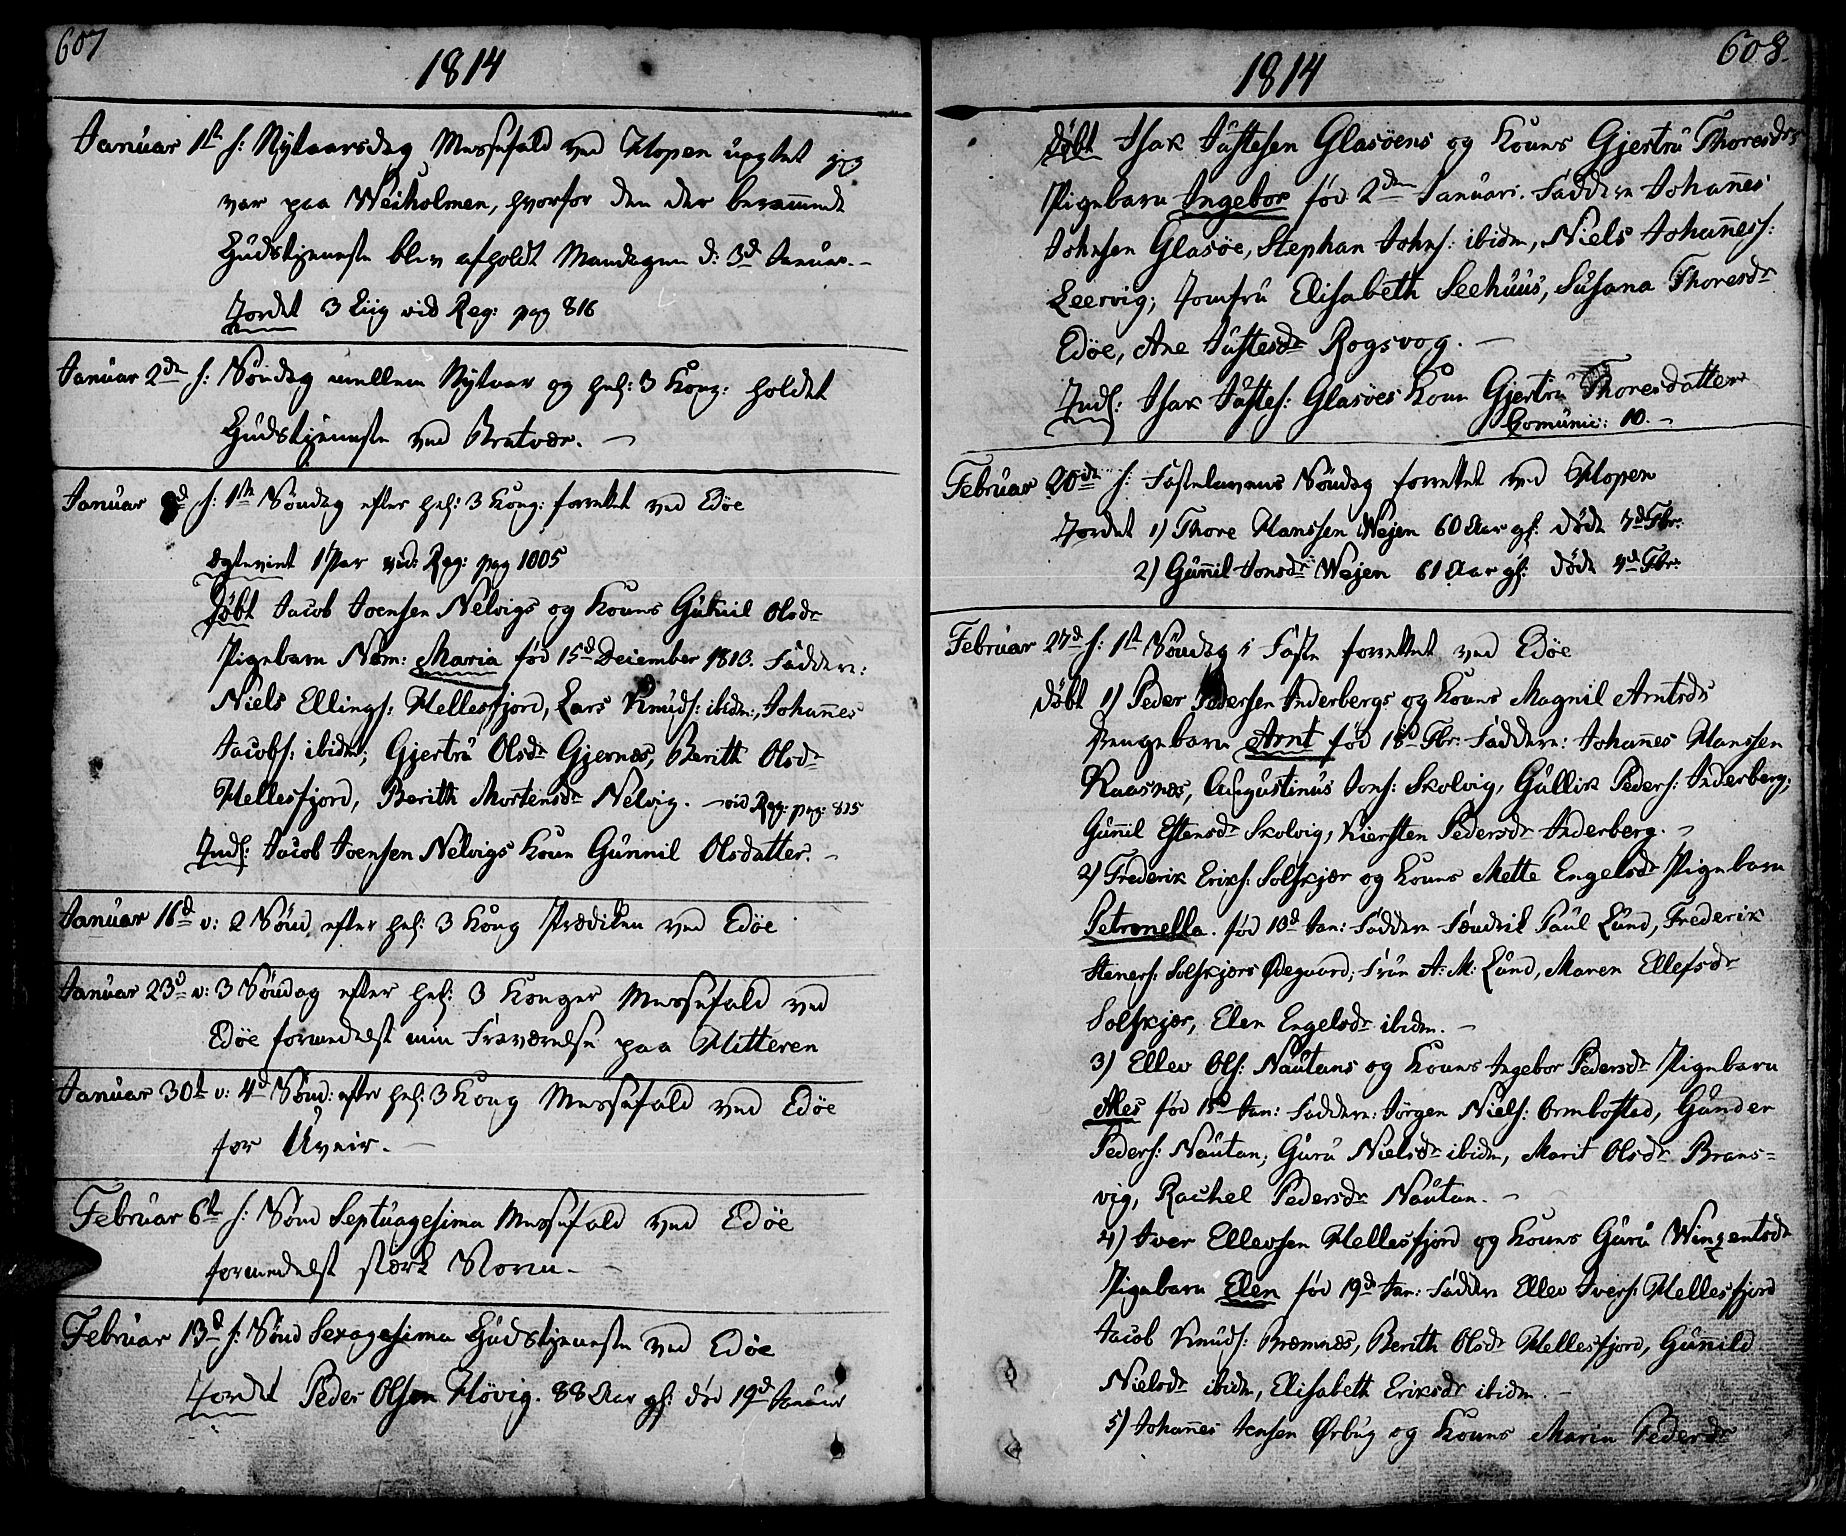 607
1814
Januar 1ste s: Nytaarsdag Messefald ved Hopen uagtet jeg
var paa Weiholmen, hvorfor den der berammede
Gudstjeneste blev afholdt Mandagen d: 3d Januar. -
Jordet 3 Liig vid Reg: pag 816
Januar 2den s: Søndag mellem Nytaar og hel: 3 Kong: holdet
Gudstjeneste ved Bratvær. -
Januar 9d s: 1ste Søndag efter hel: 3 Kong: forrettet ved Edøe
Egteviet 1 Par vid: Reg: pag 1005
Døbt Jacob Joensen Nelvigs og Kones Gunnil Olsdr
Pigebarn Navn: Maria fød 15d December 1813. Faddere:
Niels Ellings: Hellesfjord, Lars Knuds: ibidm, Johannes
Jacobs: ibidm; Gjertru Olsdr Gjernæs, Berith Olsdr
Hellesfjord, Berith Mortensdr Nelvig. - vid Reg: pag: 815
Inds: Jacob Joensen Nelvigs Kone Gunnil Olsdatter. -
Januar 16d v: 2 Sønd efter hel: 3 Kong Prædiken ved Edøe
Januar 23d v: 3 Søndag efter hel: 3 Konger Messefald ved
Edøe formedelst min Fraværelse paa Hitteren
Januar 30te v: 4d Sønd: efter hel: 3 Kong Messefald ved Edøe
for Uveir. -
Februar 6te s: Sønd Septuagesima Messefald ved Edøe
formedelst stærk Storm. -
Februar 13d s: Sønd Sexagesima Gudstjeneste ved Edøe
Jordet Peder Olsen Høvig. 88 Aar gl: død 19d Januar
608.
1814
Døbt Isak Justesen Glasøens og Kones Gjertru Thoresdrs
Pigebarn Ingebor fød 2den Januari. Faddere Johannes
Johnsen Glasøe, Stephan Johns: ibidm, Niels Johanness:
Leervig; Jomfru Elisabeth Seehuus, Susana Thoresdr
Edøe, Ane Justesdr Rogsvog. -
Inds: Isak Justes: Glasøes Kone Gjertru Thoresdatter
Comunic: 10. -
Februar 20de s: Fastelavens Søndag forrettet ved Hopen
Jordet 1) Thore Hanssen Wejen 60 Aar gl: døde 7d Fbr:
2) Gunnil Jonsdr Wejen 61 Aar gl: døde 4d Fbr:
Februar 27d s: 1ste Søndag i Faste forrettet ved Edøe
Døbt 1) Peder Pedersen Inderbergs og Kones Magnil Arntsdr
Drengebarn Arnt fød 18d Fbr: Faddere: Johannes Hanssen
Raasnæs, Augustinus Jons: Skolvig, Gullik Peders: Inderberg;
Gunnil Estensdr Skolvig, Kiersten Pedersdr Inderberg. -
2) Frederik Eriks: Solskjær og Kones Mette Engelsdr Pigebarn
Petronella. fød 10d Jan: Faddere Fændrik Paul Lund, Frederik
Steners: Solskjærs Ødegaard; Frue A: M: Lund, Maren Ellefsdr
Solskjær, Elen Engelsdr ibidm. -
3) Ellev Ols: Nautans og Kones Ingebor Pedersdr Pigebarn
Ales fød 15d Jan: Faddere: Jørgen Niels: Ormbostad, Gunder
Peders: Nautan; Guru Nielsdr ibidm, Marit Olsdr Brans=
vig, Rachel Pedersdr Nautan. -
4) Iver Ellevsen Hellesfjord og Kones Guru Winzentsdr
Pigebarn Elen fød 19de Jan: Faddere Ellev Ivers: Hellesfjord
Jacob Knuds: Bremnes, Berith Olsdr Hellesfjord, Gunild
Nielsdr ibidm, Elisabeth Eriksdr ibidm. -
5) Johannes Jensen Ørbug og Kones Maria Pedersdr